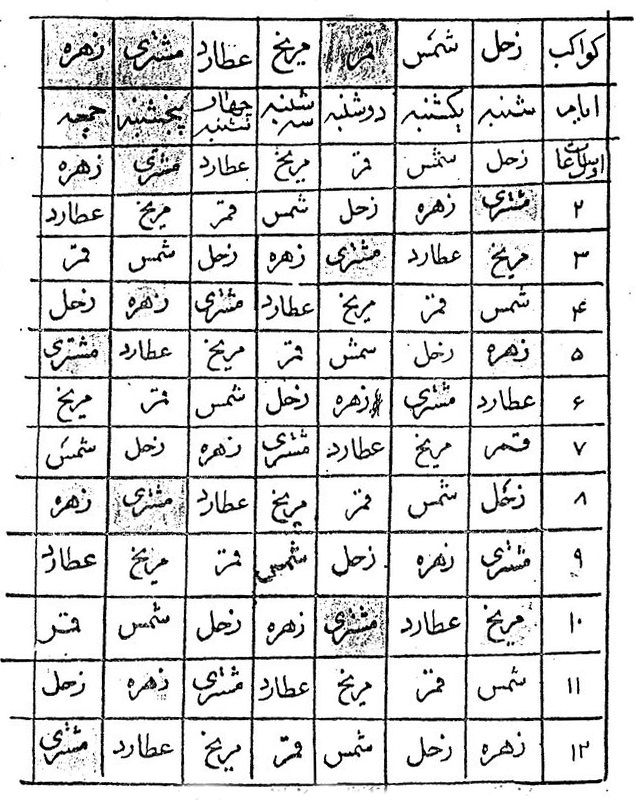 کواکب زحل شمس قمر مریخ عطارد مشتری زهره
ایام شنبه یکشنبه دوشنبه سه شنبه چهار شنبه پنجشنبه جمعه
زحل شمس قمر مریخ عطارد مشتری زهره
۲ مشتری زهره زحل شمس قمر مریخ عطارد
۳ مریخ عطارد مشتری زهره زحل شمس قمر
۴ شمس قمر مریخ عطارد مشتری زهره زحل
۵ زهره زحل شمس قمر مریخ عطارد مشتری
۶ عطارد مشتری زهره زحل شمس قمر مریخ
۷ قمر مریخ عطارد مشتری زهره زحل شمس
۸ زحل شمس قمر مریخ عطارد مشتری زهره
۹ مشتری زهره زحل شمس قمر مریخ عطارد
۱۰ مریخ عطارد مشتری زهره زحل شمس قمر
۱۱ شمس قمر مریخ عطارد مشتری زهره زحل
۱۲ زهره زحل شمس قمر مریخ عطارد مشتری